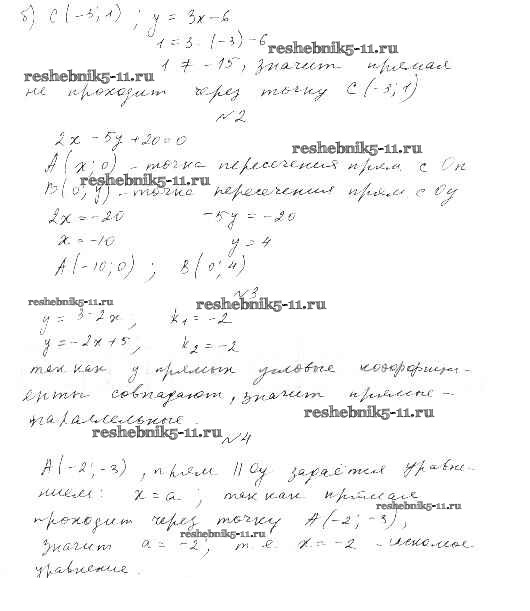 б) С(-3; 1) ; y = 3x-6
1 = 3·(-3)-6
reshebnik5-11.ru
1 ≠ -15, значит прямая
reshebnik5-11.ru
не проходит через точку С(-3; 1)
№2
2x -5y+20=0
reshebnik5-11.ru
A(x; 0) - точка пересечения прям с Ох
reshebnik5-11.ru
B(0; y) - точка пересечения прям с Оу
2x = -20 -5y = -20
x = -10 y = 4
A(-10; 0) ; B(0; 4)
№3
reshebnik5-11.ru reshebnik5-11.ru
y = 3-2x; k₁ = -2
y = -2x+5, k₂ = -2
так как у прямых угловые коэффици-
енты совпадают, значит прямые -
reshebnik5-11.ru
параллельные.
reshebnik5-11.ru
№4
A(-2; -3), прям || Оу задаётся уравне-
нием: x = a ; так как прямая
reshebnik5-11.ru
проходит через точку A(-2; -3),
reshebnik5-11.ru
значит a = -2, т.е. x = -2 - искомое
уравнение.